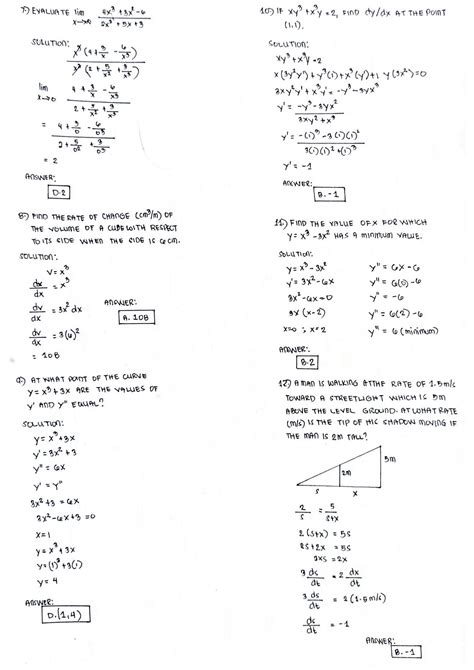 7.) EVALUATE lim x→∞ 4x³+3x²-6 / 2x³+5x+3
SOLUTION:
x³(4+3/x-6/x³)
x³(2+5/x²+3/x³)
lim x→0 4+3/x-6/x³
2+5/x²+3/x³
= 4+3/0-6/0³
2+5/0²+3/0³
= 2
ANSWER:
D.2
8.) FIND THE RATE OF CHANGE (cm³/m) OF
THE VOLUME OF A CUBE WITH RESPECT
TO ITS SIDE WHEN THE SIDE IS 6CM.
SOLUTION:
V=x³
dx/dx = x³
dv/dx = 3x² dx
dv/dx = 3(6)²
= 108
ANSWER:
A. 108
9.) AT WHAT POINT OF THE CURVE
y=x³+3x ARE THE VALUES OF
y' AND y" EQUAL?
SOLUTION:
y=x³+3x
y'=3x²+3
y"=6x
y'=y"
3x²+3=6x
3x²-6x+3=0
x=1
y=x³+3x
y=(1)³+3(1)
y=4
ANSWER:
D.(1,4)
10.) IF xy³+x³y=2, FIND dy/dx AT THE POINT
(1,1).
SOLUTION:
xy³+x³y=2
x(3y²y')+y³(1)+x³(y')+y(3x²)=0
3xy²y'+x³y'=-y³-3yx²
y'=-y³-3yx²
3xy²+x³
y'=-(1)³-3(1)(1)²
3(1)(1)²+(1)³
y'=-1
ANSWER:
B.-1
11.) FIND THE VALUE OF X FOR WHICH
y=x³-3x² HAS A MINIMUM VALUE.
SOLUTION:
y=x³-3x² y"=6x-6
y'=3x²-6x y"=6(0)-6
3x²-6x=0 y"=-6
3x(x-2) y"=6(2)-6
x=0 ; x=2 y"=6(minimum)
ANSWER:
B.2
12.) A MAN IS WALKING AT THE RATE OF 1.5m/s
TOWARD A STREETLIGHT WHICH IS 5M
ABOVE THE LEVEL GROUND. AT WHAT RATE
(m/s) IS THE TIP OF HIS SHADOW MOVING IF
THE MAN IS 2M TALL?
5m
2m
s x
2/s = 5/s+x
2(s+x)=5s
2s+2x=5s
2x=2x
3 ds/dt = 2 dx/dt
3 ds/dt = 2(1.5m/s)
ds/dt = -1
ANSWER:
B.-1